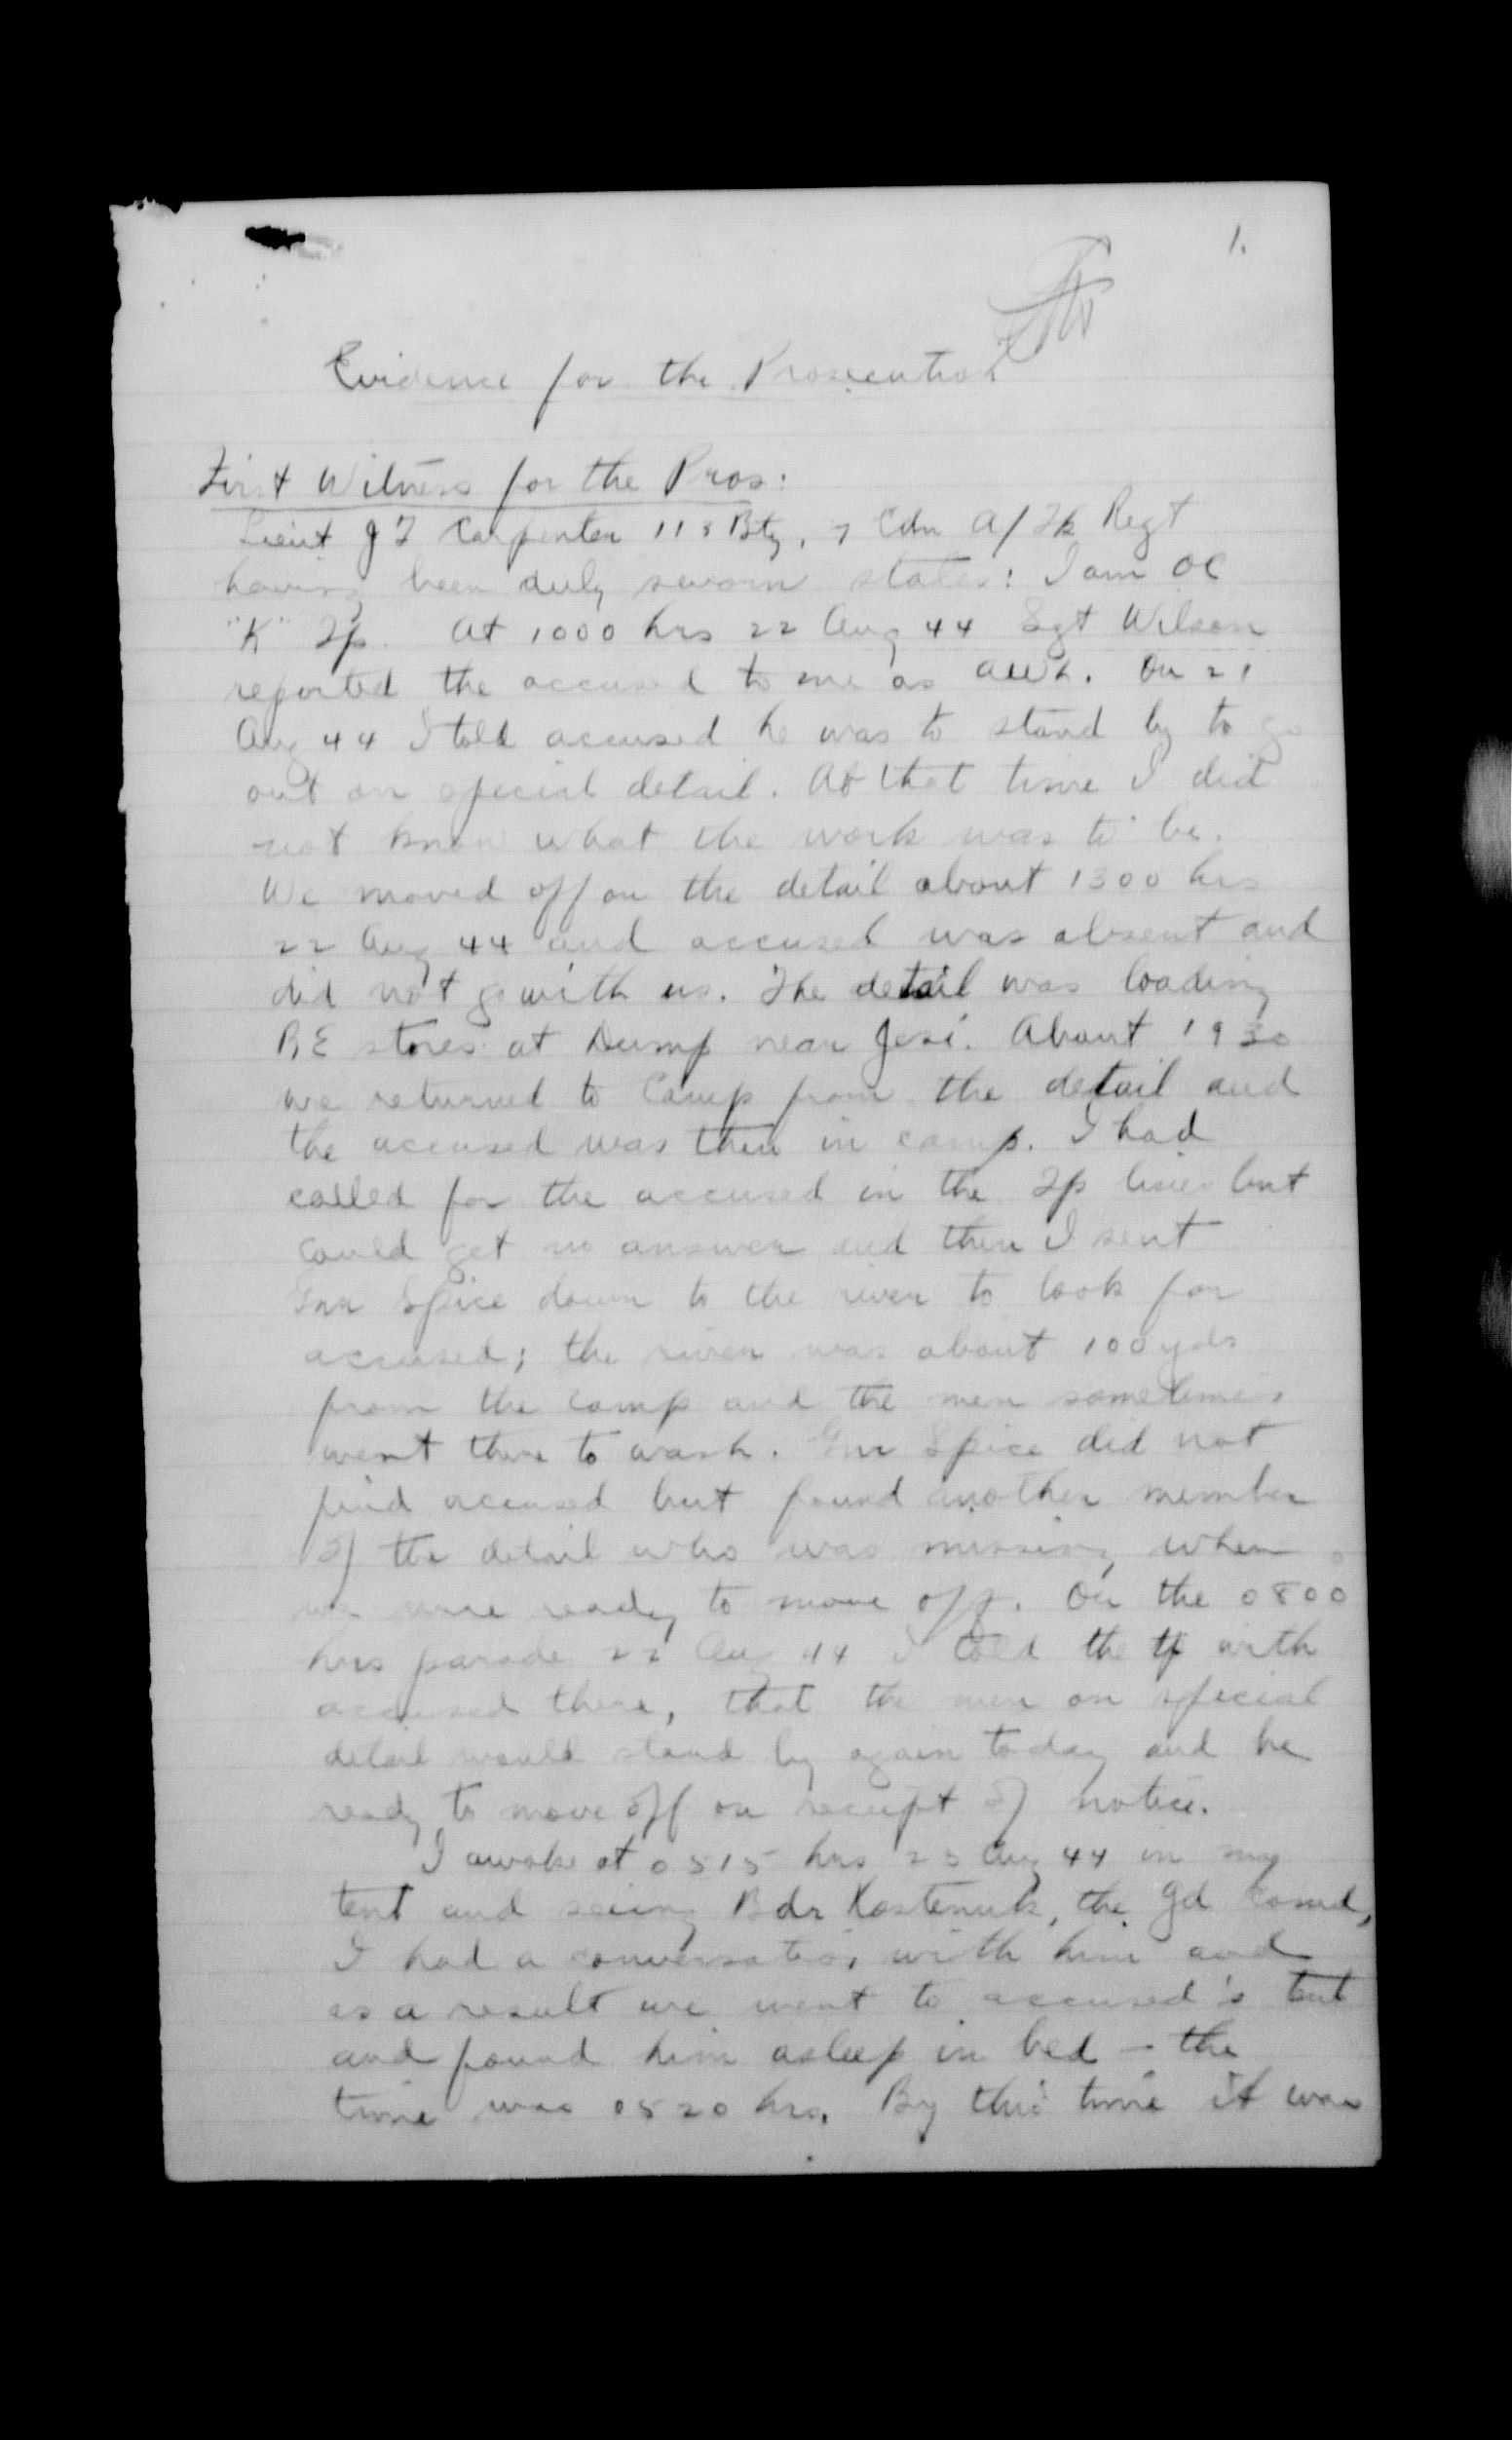 1.
Evidence for the Prosecution
First Witness for the Pros:
Lieut J F Carpenter 113 Bty, 7 Cdn A/Tk Regt
having been duly sworn states: I am OC
"K" Tp. At 1000 hrs 22 Aug 44 Sgt Wilson
reported the accused to me as AWL. On 21
Aug 44 I told accused he was to stand by to go
out on special detail. At that time I did
not know what the work was to be.
We moved off on the detail about 1300 hrs
22 Aug 44 and accused was absent and
did not go with us. The detail was loading
RE stores at Dump near Jesi. About 1930
we returned to Camp from the detail and
the accused was then in camp. I had
called for the accused in the Tp lines but
could get no answer and then I sent
Gnr Spice down to the river to look for
accused; the river was about 100 yds
from the camp and the men sometimes
went there to wash. Gnr Spice did not
find accused but found another member
of the detail who was missing when
we were ready to move off. On the 0800
hrs parade 22 Aug 44 I told the tp with
accused there, that the men on special
detail would stand by again today and be
ready to move off on receipt of notice.
I awoke at 0515 hrs 23 Aug 44 in my
tent and seeing Bdr Kostenuk, the gd comd,
I had a conversation with him and
as a result we went to accused's tent
and found him asleep in bed - the
time was 0520 hrs. By this time it was